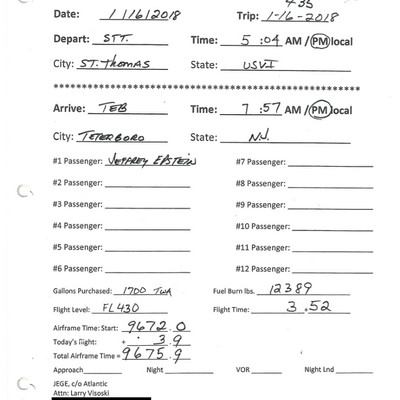 435
Date: 1/16/2018 Trip: 1-16-2018
Depart: STT. Time: 5:04 AM / PM local
City: ST. Thomas State: USVI
************************************************************
Arrive: TEB Time: 7:57 AM / PM local
City: TETERBORO State: N.J.
#1 Passenger: JEFFREY EPSTEIN #7 Passenger:
#2 Passenger: #8 Passenger:
#3 Passenger: #9 Passenger:
#4 Passenger: #10 Passenger:
#5 Passenger: #11 Passenger:
#6 Passenger: #12 Passenger:
Gallons Purchased: 1700 TWA Fuel Burn lbs. 12389
Flight Level: FL430 Flight Time: 3.52
Airframe Time: Start: 9672.0
Today's flight: + 3.9
Total Airframe Time = 9675.9
Approach Night VOR Night Lnd
JEGE, c/o Atlantic
Attn: Larry Visoski